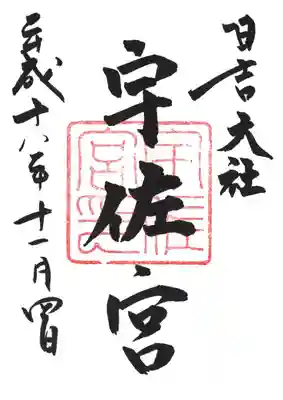 日吉大社
宇佐宮
宇佐
宮印
平成十八年十一月四日